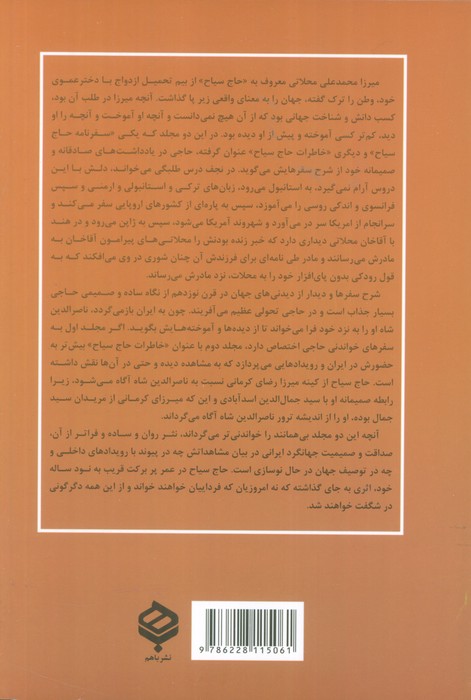 میرزا محمدعلی محلاتی معروف به «حاج سیاح» از بیم تحمیل ازدواج با دختر عموی
خود، وطن را ترک گفته، جهان را به معنای واقعی زیر پا گذاشت. آنچه میرزا در طلب آن بود،
کسب دانش و شناخت جهانی بود که از آن هیچ نمی‌دانست و آنچه او آموخت و آنچه را او
دید، کم‌تر کسی آموخته و پیش از او دیده بود. در این دو مجلد که یکی «سفرنامه حاج
سیاح» و دیگری «خاطرات حاج سیاح» عنوان گرفته، حاجی در یادداشت‌های صادقانه و
صمیمانه خود از شرح سفرهایش می‌گوید. در نجف درس طلبگی می‌خواند، دلش با این
دروس آرام نمی‌گیرد، به استانبول می‌رود، زبان‌های ترکی و استانبولی و ارمنی و سپس
فرانسوی و اندکی روسی را می‌آموزد، سپس به پاره‌ای از کشورهای اروپایی سفر می‌کند و
سرانجام از امریکا سر در می‌آورد و شهروند آمریکا می‌شود، سپس به ژاپن می‌رود و در هند
با آقاخان محلاتی دیداری دارد که خبر زنده بودنش را محلاتی‌های پیرامون آقاخان به
مادرش می‌رسانند و مادر طی نامه‌ای برای فرزندش آن چنان شوری در وی می‌افکند که به
قول رودکی بدون پای‌افزار خود را به محلات، نزد مادرش می‌رساند.
شرح سفرها و دیدار از دیدنی‌های جهان در قرن نوزدهم از نگاه ساده و صمیمی حاجی
بسیار جذاب است و در حاجی تحولی عظیم می آفریند. چون به ایران بازمی‌گردد، ناصرالدین
شاه او را به نزد خود فرا می‌خواند تا از دیده‌ها و آموخته‌هایش بگوید. اگر مجلد اول به
سفرهای خواندنی حاجی اختصاص دارد، مجلد دوم با عنوان «خاطرات حاج سیاح» بیش‌تر به
حضورش در ایران و رویدادهایی می‌پردازد که به مشاهده دیده و حتی در آن‌ها نقش داشته
است. حاج سیاح از کینه میرزا رضای کرمانی نسبت به ناصرالدین شاه آگاه می‌شود، زیرا
رابطه صمیمانه او با سید جمال‌الدین اسدآبادی و این که میرزای کرمانی از مریدان سید
جمال بوده، او را از اندیشه ترور ناصرالدین شاه آگاه می‌گرداند.
آنچه این دو مجلد بی‌همانند را خواندنی‌تر می‌گرداند، نثر روان و ساده و فراتر از آن،
صداقت و صمیمیت جهانگرد ایرانی در بیان مشاهداتش چه در پیوند با رویدادهای داخلی و
چه در توصیف جهان در حال نوسازی است. حاج سیاح در عمر پر برکت قریب به نود ساله
خود، اثری به جای گذاشته که نه امروزیان که فرداییان خواهند خواند و از این همه دگرگونی
در شگفت خواهند شد.
نشر باهم
9 786228 115061